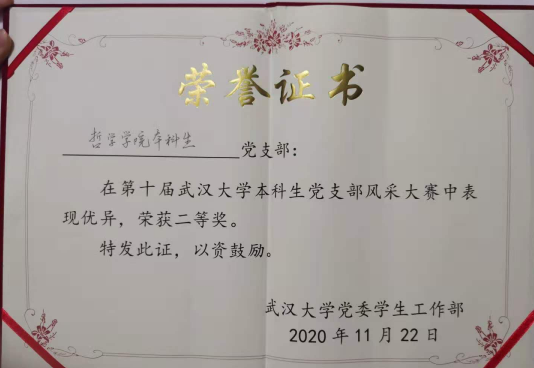 荣誉证书
哲学学院本科生党支部：
在第十届武汉大学本科生党支部风采大赛中表
现优异，荣获二等奖。
特发此证，以资鼓励。
武汉大学党委学生工作部
2020年11月22日